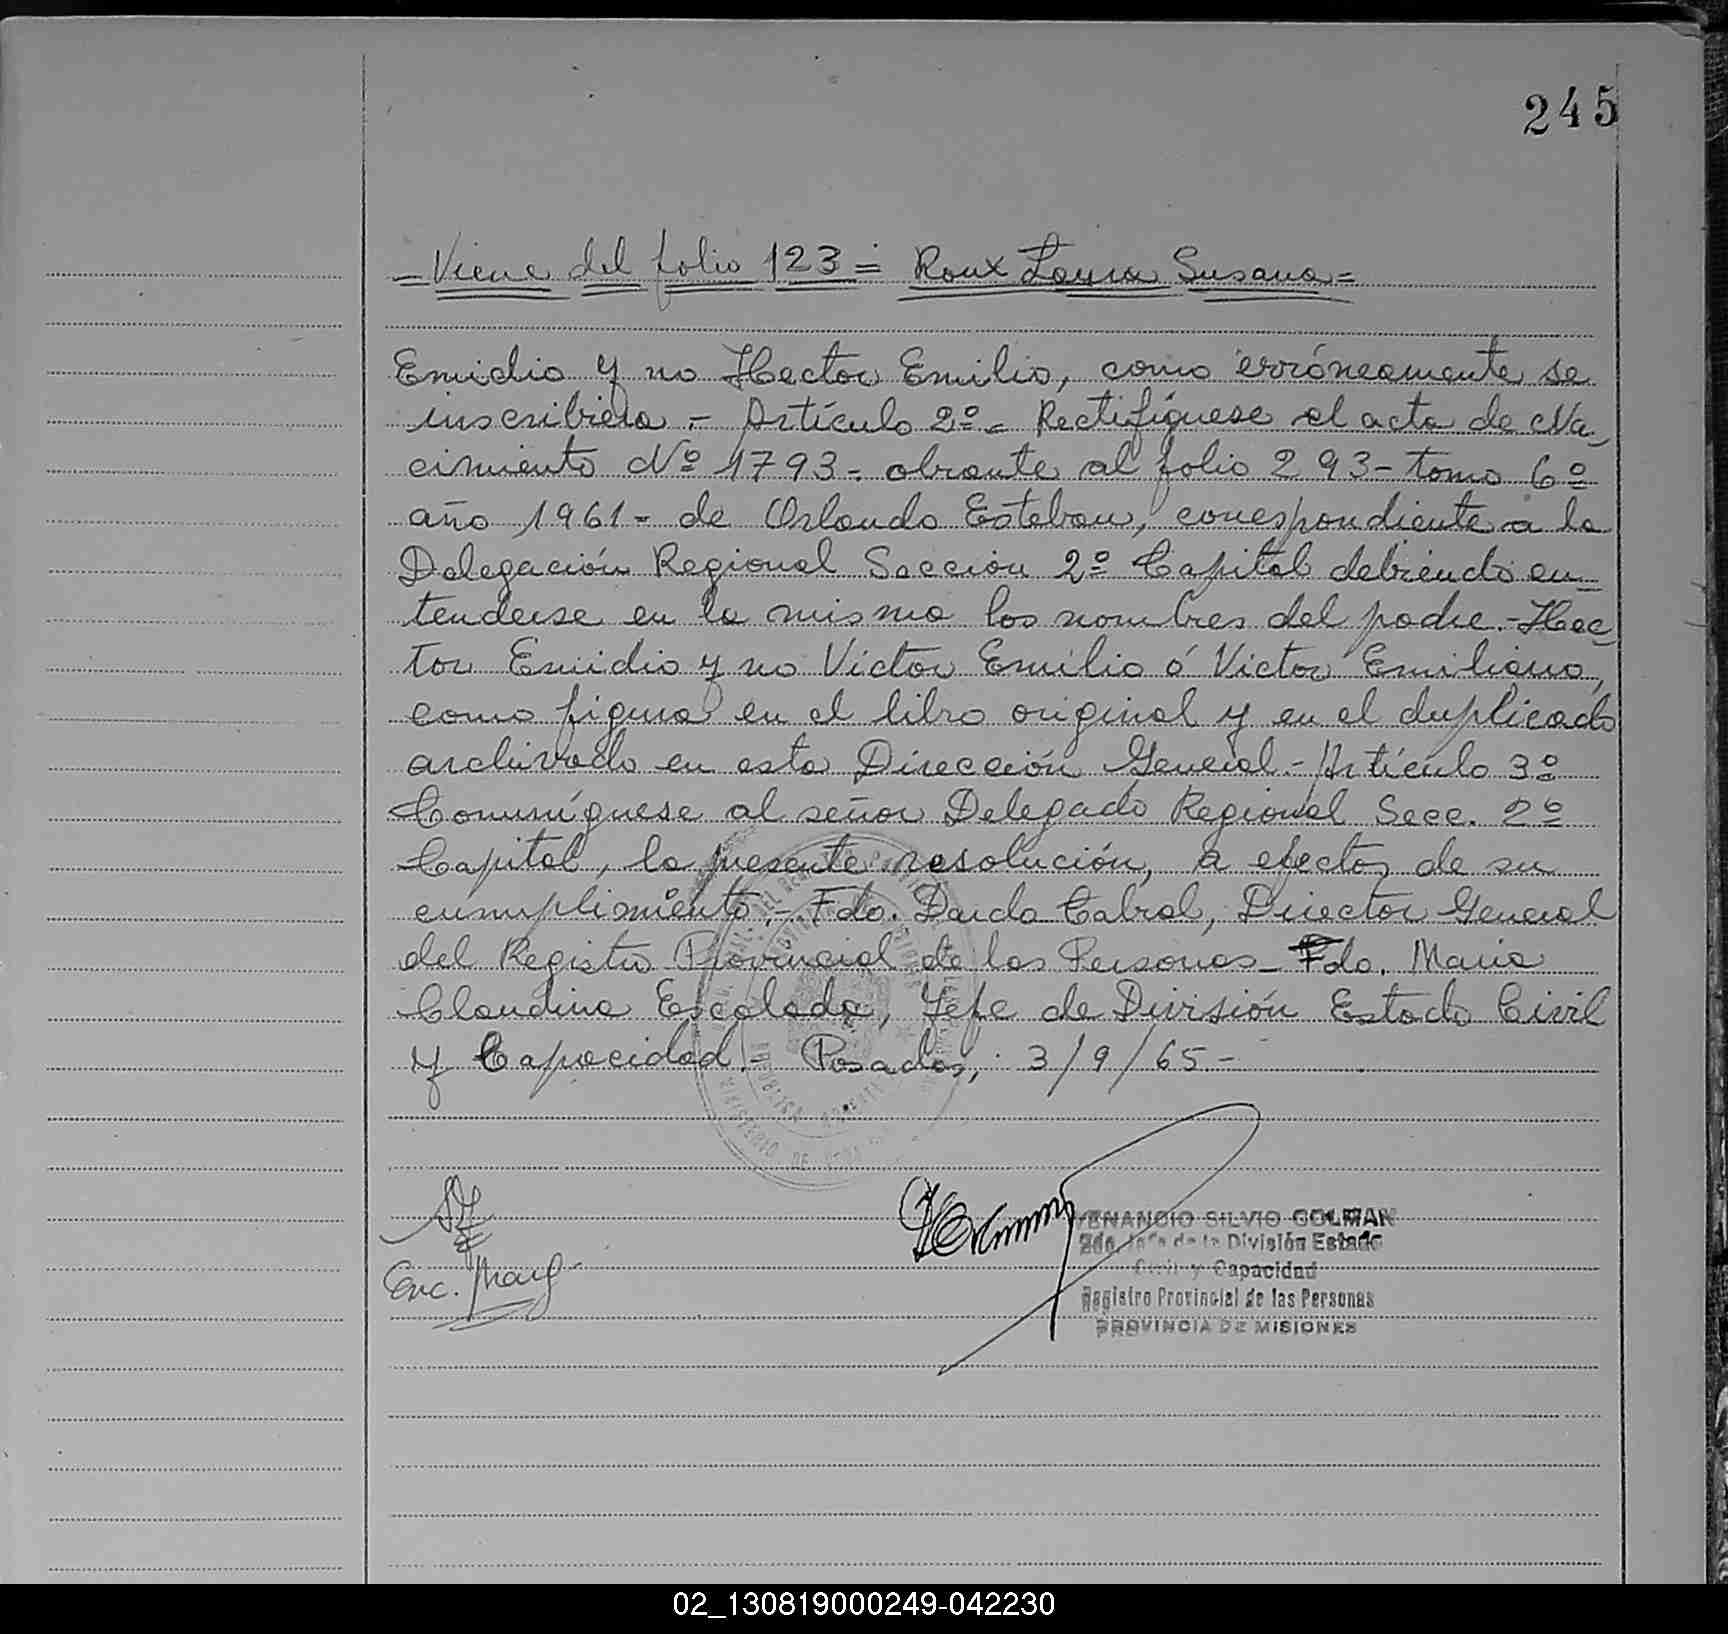 245
- Viene del folio 123 = Roux Laura Susana =
Emidio y no Hector Emilio, como erróneamente se
inscribiera.- Artículo 2º- Rectifíquese el acta de Na-
cimiento Nº 1793- obrante al folio 293- tomo 6º
año 1961- de Orlando Esteban, correspondiente a la
Delegación Regional Sección 2º Capital debiendo en-
tenderse en la misma los nombres del padre.- Hec-
tor Emidio y no Victor Emilio ó Victor Emiliano,
como figura en el libro original y en el duplicado
archivado en esta Dirección General.- Artículo 3º
Comuníquese al señor Delegado Regional Secc. 2º
Capital, la presente resolución, a efectos de su
cumplimiento.- Fdo. Dardo Cabral, Director General
del Registro Provincial de las Personas- Fdo. Maria
Claudina Escalada, Jefe de División Estado Civil
y Capacidad.- Posadas, 3/9/65-
Enc. Marg-
VENANCIO SILVIO GOLMAN
2do. Jefe de la División Estado
Civil y Capacidad
Registro Provincial de las Personas
PROVINCIA DE MISIONES
02_130819000249-042230